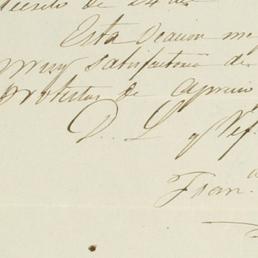 decreto de 24 de
Esta ocacion me
muy satisfactoria de
protestas de aprecio
D. L. y Ref.
Fran.